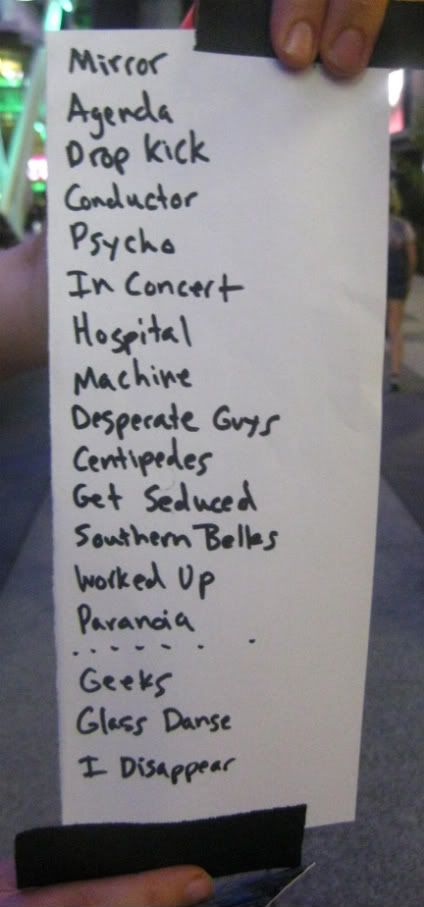 Mirror
Agenda
Drop Kick
Conductor
Psycho
In Concert
Hospital
Machine
Desperate Guys
Centipedes
Get Seduced
Southern Belles
Worked Up
Paranoia
. . . . . .
Geeks
Glass Danse
I Disappear